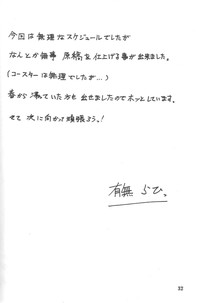 今回は無理なスケジュールでしたが
なんとか無事 原稿を仕上げる事が出来ました。
(コースターは無理でしたが…)
春から凍っていた方も出せましたのでホッとしています。
さて 次に向かって頑張ろう。!
有無 らひ。
32